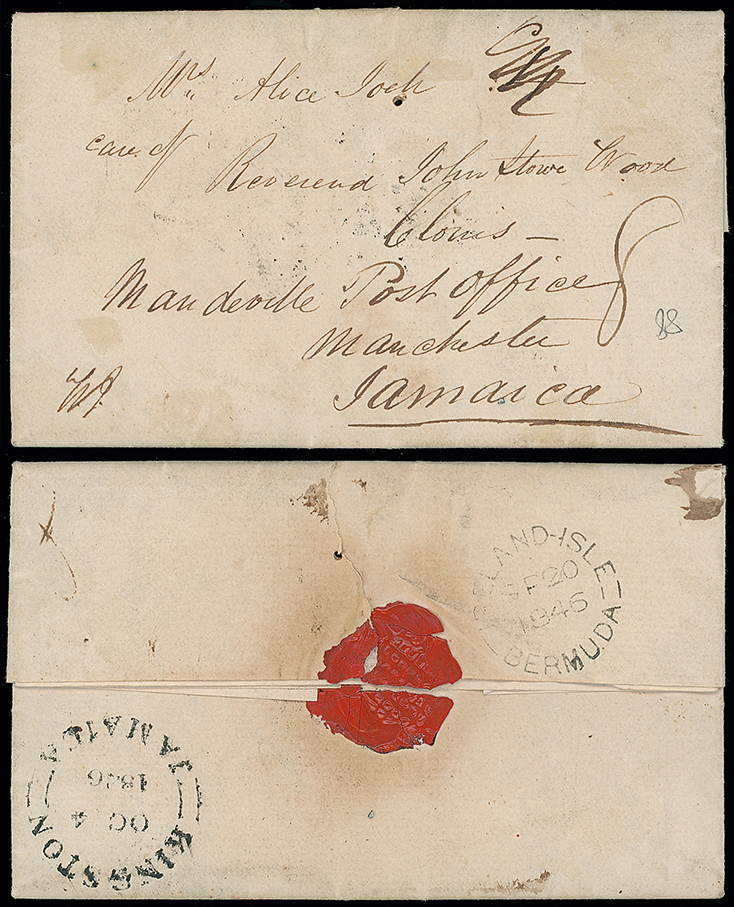 Mrs Alice
care of
Reverend John Stowe Wood
Mandeville Post Office
8
Manchester
Jamaica
LAND-ISLE
P20
1846
BERMUDA
JAMAICA
1846
OC 4
KINGSTON